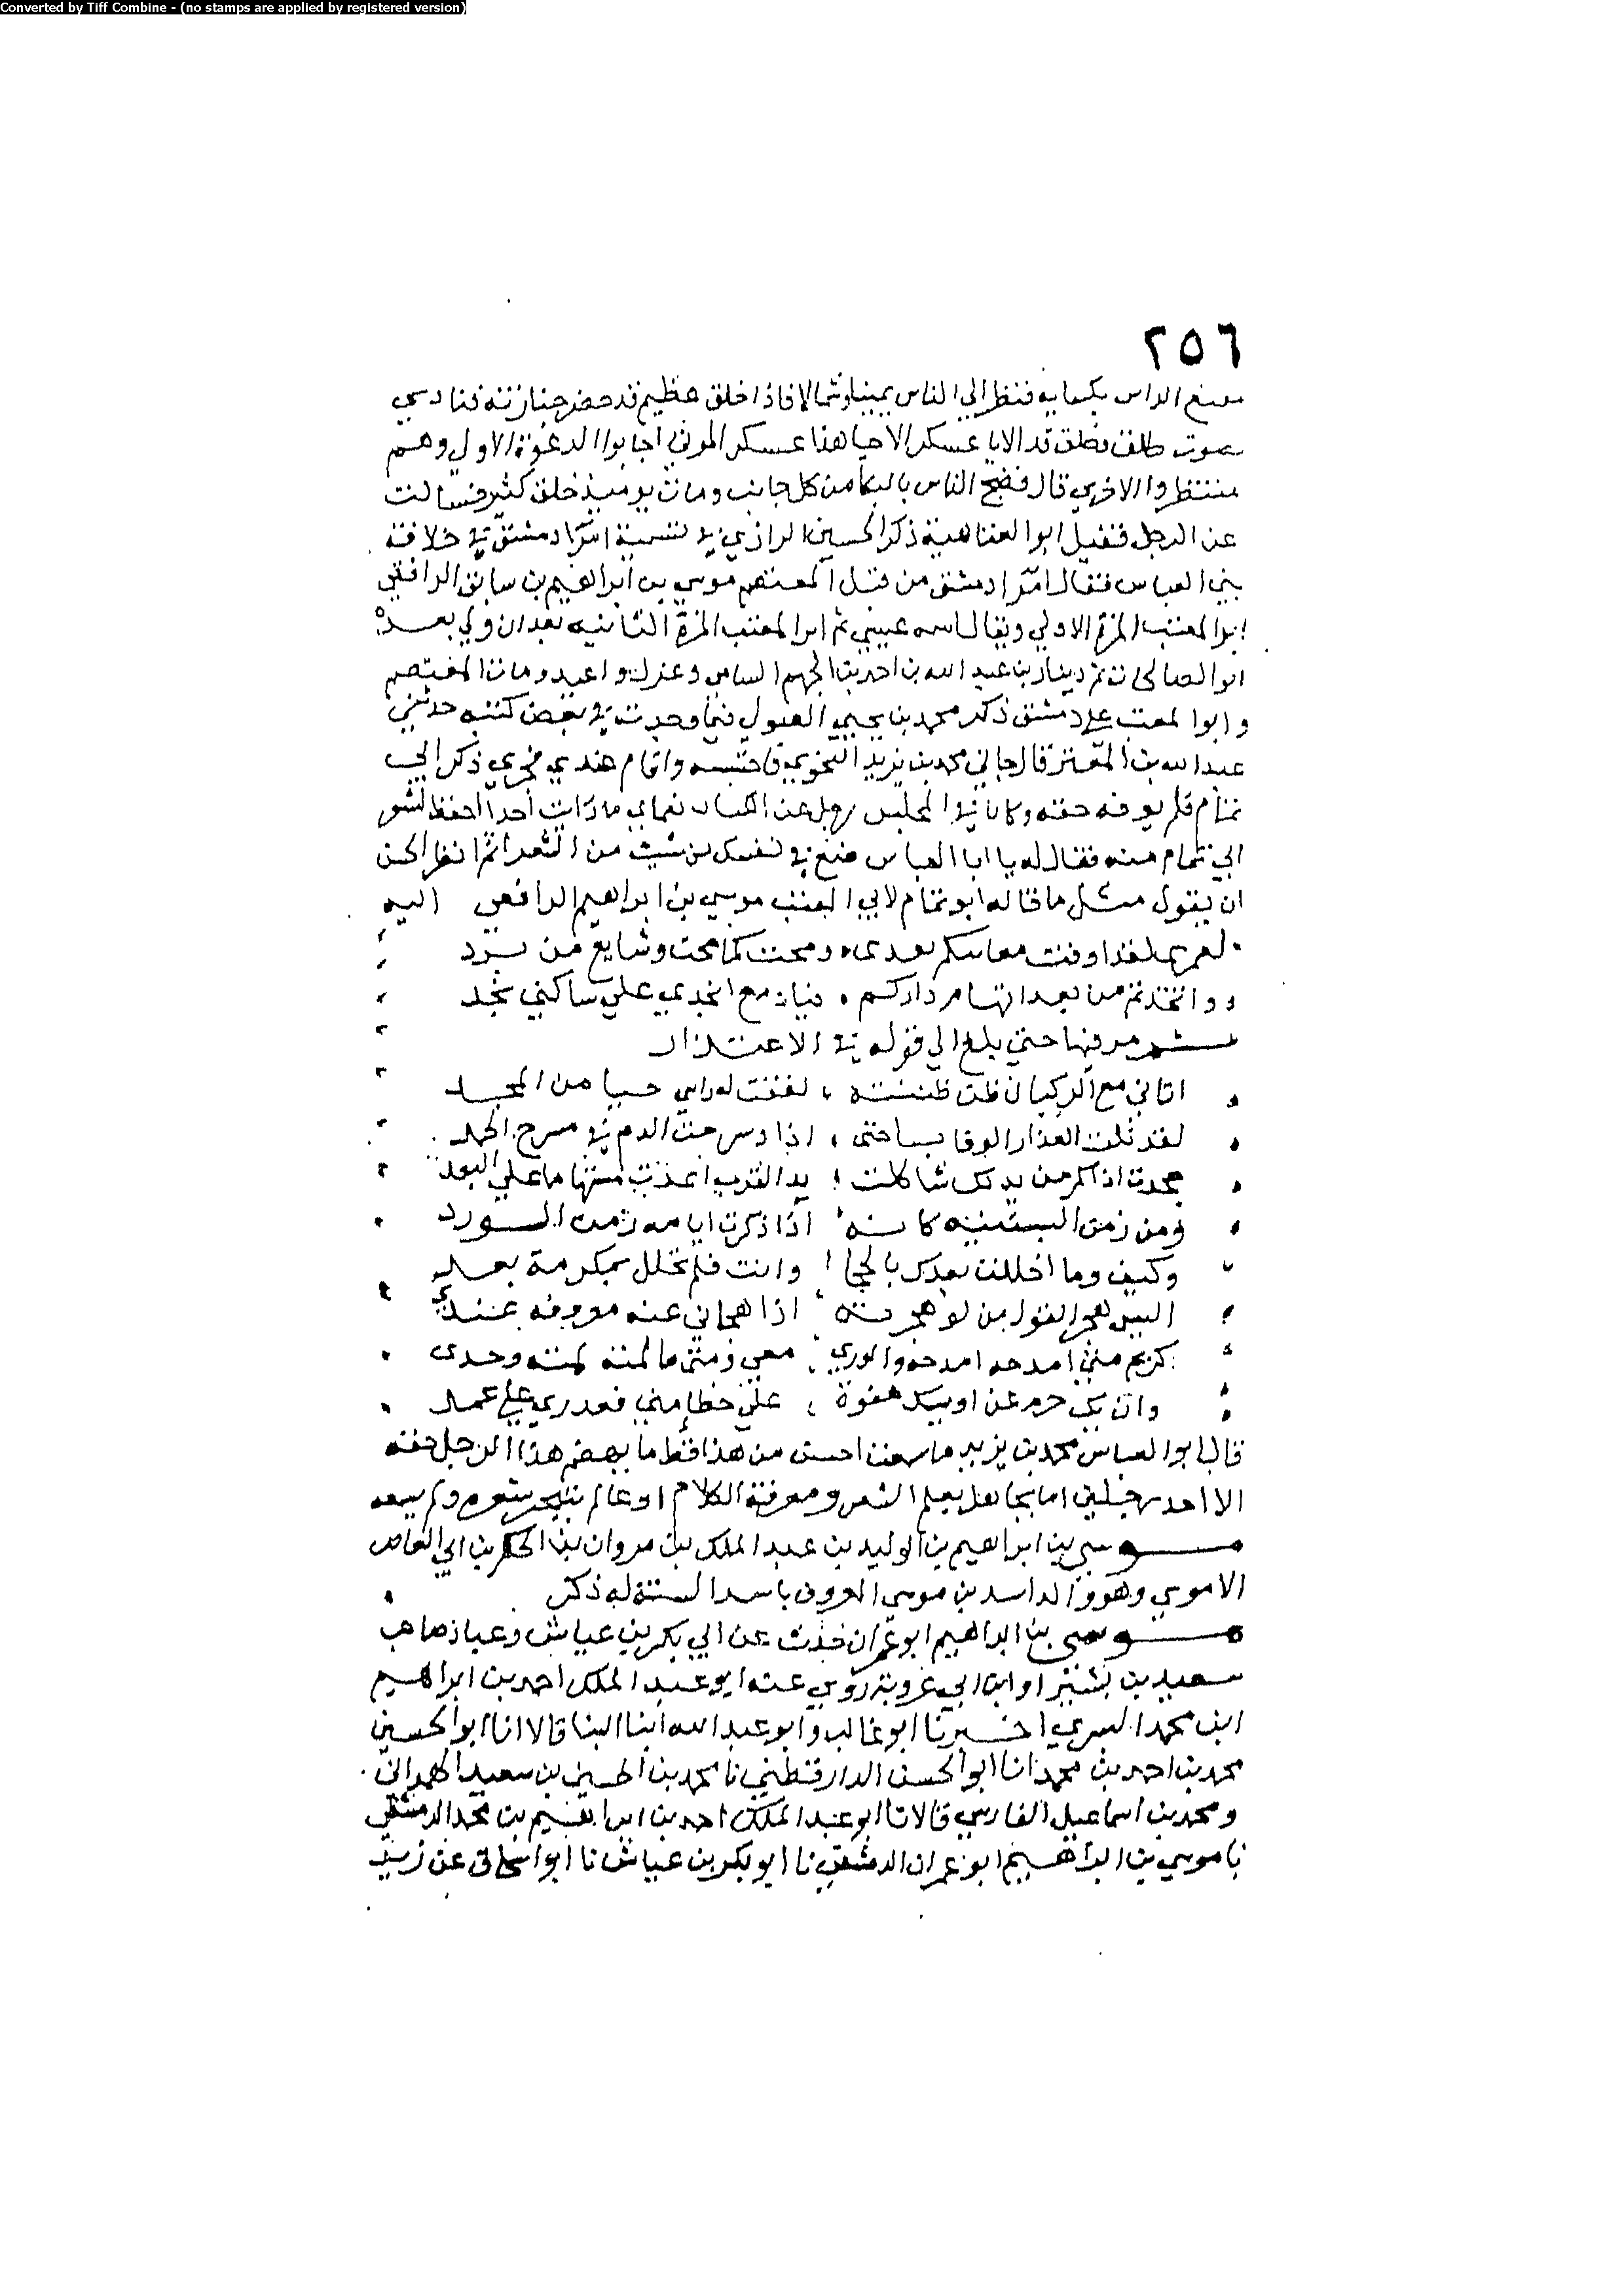 Converted by Tiff Combine - (no stamps are applied by registered version)
٢٥٦
الراس بكسايه فنظر الي الناس يمينا وشمالا فاذا خلق عظيم قد حضر جنازته فنادي
بصوت طلق الا يا عسكر الاحيا هذا عسكر الموتي اجابوا الدعوة الاولي وهم
منتظروا الاخري قال فضج الناس بالبكا من كل جانب ومات يوميذ خلق كثير فسالت
عن الرجل فقيل ابو العتاهية ذكر الحسين الرازي في تسمية امرا دمشق في خلافة
بني العباس فقال امرا دمشق من قبل المعتصم موسي بن ابراهيم بن سابق الرافقي
ابو المغيث المرة الاولي ويقال اسمه عيسي ثم ابو المغيث المرة الثانيه بعد ان ولي بعده
ابو الصالحات ثم دينار بن عبد الله بن احمد بن الجهم وعزل واعيد ومات المعتصم
وابو المغيث علي دمشق ذكر محمد بن يحيي الصولي فيما وجدت في بعض كتبه حدثني
عبد الله بن المعتز قال جاني محمد بن يزيد النحوي فاحتبسته واقام عندي فجري ذكر ابي
تمام فلم يوفه حقه وكان في المجلس رجل من الكتاب ما رايت احدا احفظ لشعر
ابي تمام منه فقال له يا ابا العباس ضع في نفسك من شيت من الشعرا ثم انظر ايحسن
ان يقول مثل ما قاله ابو تمام لابي المغيث موسي بن ابراهيم الرافقي اليه
لعمري لقد اقوت مغانيكم بعدي ومحت كما محت وشايع من برد
وانجدتم من بعد اتهام داركم فيا دمع انجدني علي ساكني نجد
ثم مر فيها حتي بلغ الي قوله في الاعتذار
اتاني مع الركبان ظن ظننته لففت له راسي حيا من المجد
لقد نكب الغدر الوفا بساحتي اذا وسرحت الذم في مسرح الحمد
جحدت اذا كم من يد لك شاكلت يد القرب اعدت مستهاما علي البعد
ومن زمن البستنيه كانه اذا ذكرت ايامه زمن الورد
وكيف وما اخللت بعدك بالحجا وانت فلم تخلل بمكرمة بعدي
البس هجر القول من لو هجرته اذا هجاني عنه معروفه عندي
كريم متي امدحه امدحه والوري معي ومتي ما لمته لمته وحدي
وان يك جرم عن او تك هفوة علي خطا مني فعذري علي عمد
قال ابو العباس محمد بن يزيد ما سمعت احسن من هذا قط ما يهضم هذا الرجل حقه
الا احد رجلين اما جاهل بعلم الشعر ومعرفة الكلام او عالم لم يتبحر شعره ولم يسمعه
موسي بن ابراهيم بن الوليد بن عبد الملك بن مروان بن الحكم بن ابي العاص
الاموي وهو والد اسد بن موسي المعروف باسد السنة له ذكر
موسي بن ابراهيم ابو عمران حدث عن ابي بكر بن عياش وعباد صاحب
سعيد بن بشير او ابن ابي عروبة روي عنه ابو عبد الملك احمد بن ابراهيم
ابن محمد البسري اخبرنا ابو غالب وابو عبد الله ابنا البنا قالا انا ابو الحسين
محمد بن احمد بن محمد انا ابو الحسن الدارقطني نا محمد بن الحسين بن سعيد الهمداني
ومحمد بن اسماعيل الفارسي قالا نا ابو عبد الملك احمد بن ابراهيم بن محمد الدمشقي
نا موسي بن ابراهيم ابو عمران الدمشقي نا ابو بكر بن عياش نا ابو اسحاق عن زيد